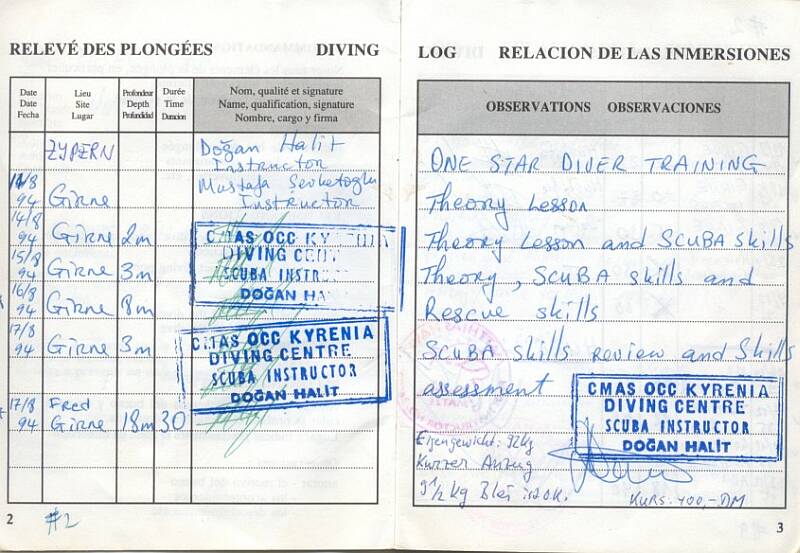 RELEVÉ DES PLONGÉES DIVING
Date Lieu Profondeur Durée Nom, qualité et signature
Date Site Depth Time Name, qualification, signature
Fecha Lugar Profundidad Duracion Nombre, cargo y firma
ZYPERN Doğan Halit
Instructor
14/8 Mustafa
94 Girne Instructor
14/8
94 Girne 2m
15/8
94 Girne 3m
16/8
94 Girne 8m
17/8
94 Girne 3m
CMAS OCC KY
DIVING CENT
SCUBA INSTRUC
DOĞAN HA
CMAS OCC KYRENIA
DIVING CENTRE
SCUBA INSTRUCTOR
DOĞAN HALIT
17/8 Fred
94 Girne 18m 30
2 #2
LOG RELACION DE LAS INMERSIONES
OBSERVATIONS OBSERVACIONES
ONE STAR DIVER TRAINING
Theory Lesson
Theory Lesson and SCUBA skills
Theory, SCUBA skills and
Rescue skills
SCUBA skills review and skills
assessment
CMAS OCC KYRENIA
DIVING CENTRE
SCUBA INSTRUCTOR
DOĞAN HALIT
Eigengewicht: 92kg
Kurzer Anzug
9 1/2 kg Blei
KURS: 400,-DM
3